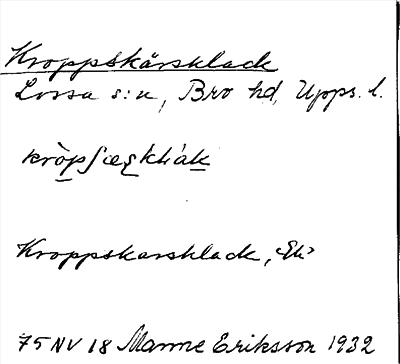 Kroppskärsklack
Lossa s:n, Bro hd, Upps. l.
Kroppskarsklack, Ek
75 NV 18 Manne Eriksson 1932